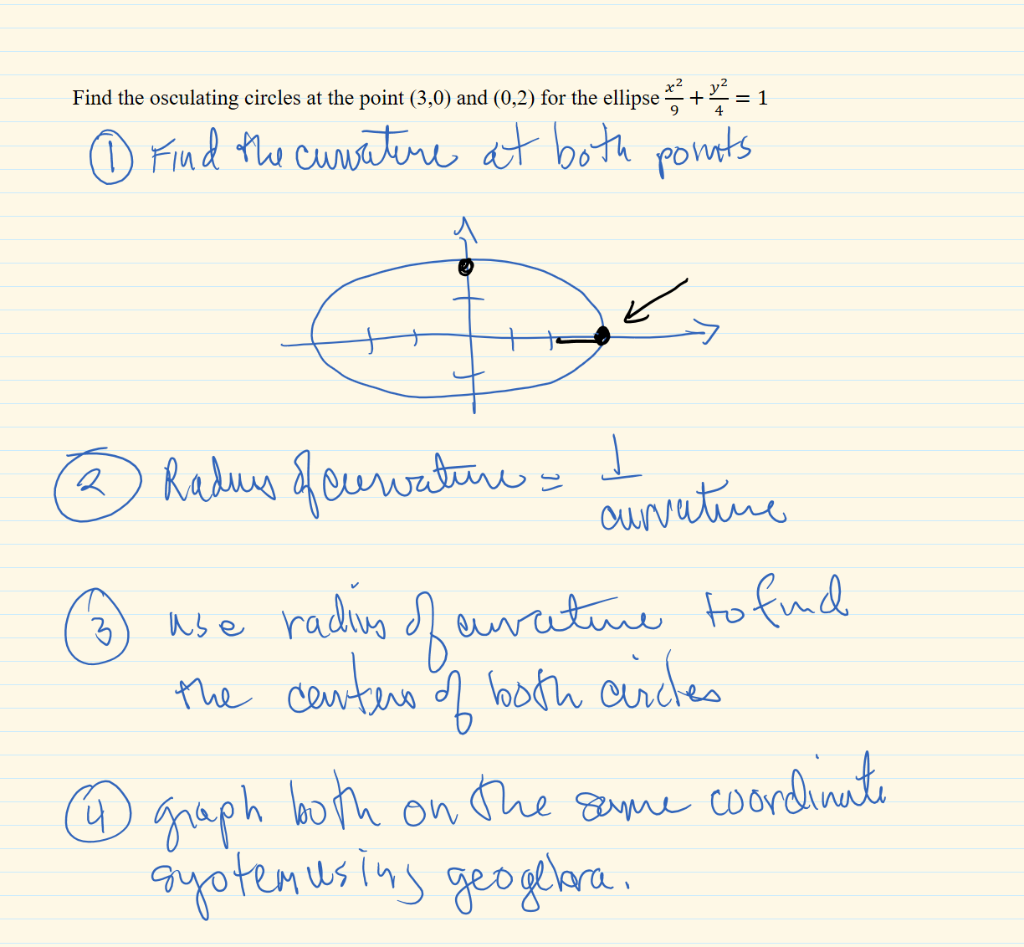 Find the osculating circles at the point (3,0) and (0,2) for the ellipse x²/9 + y²/4 = 1
① Find the curvature at both points
② Radius of curvature = 1/curvature
③ use radius of curvature to find
the centers of both circles
④ graph both on the same coordinate
system using geogebra.